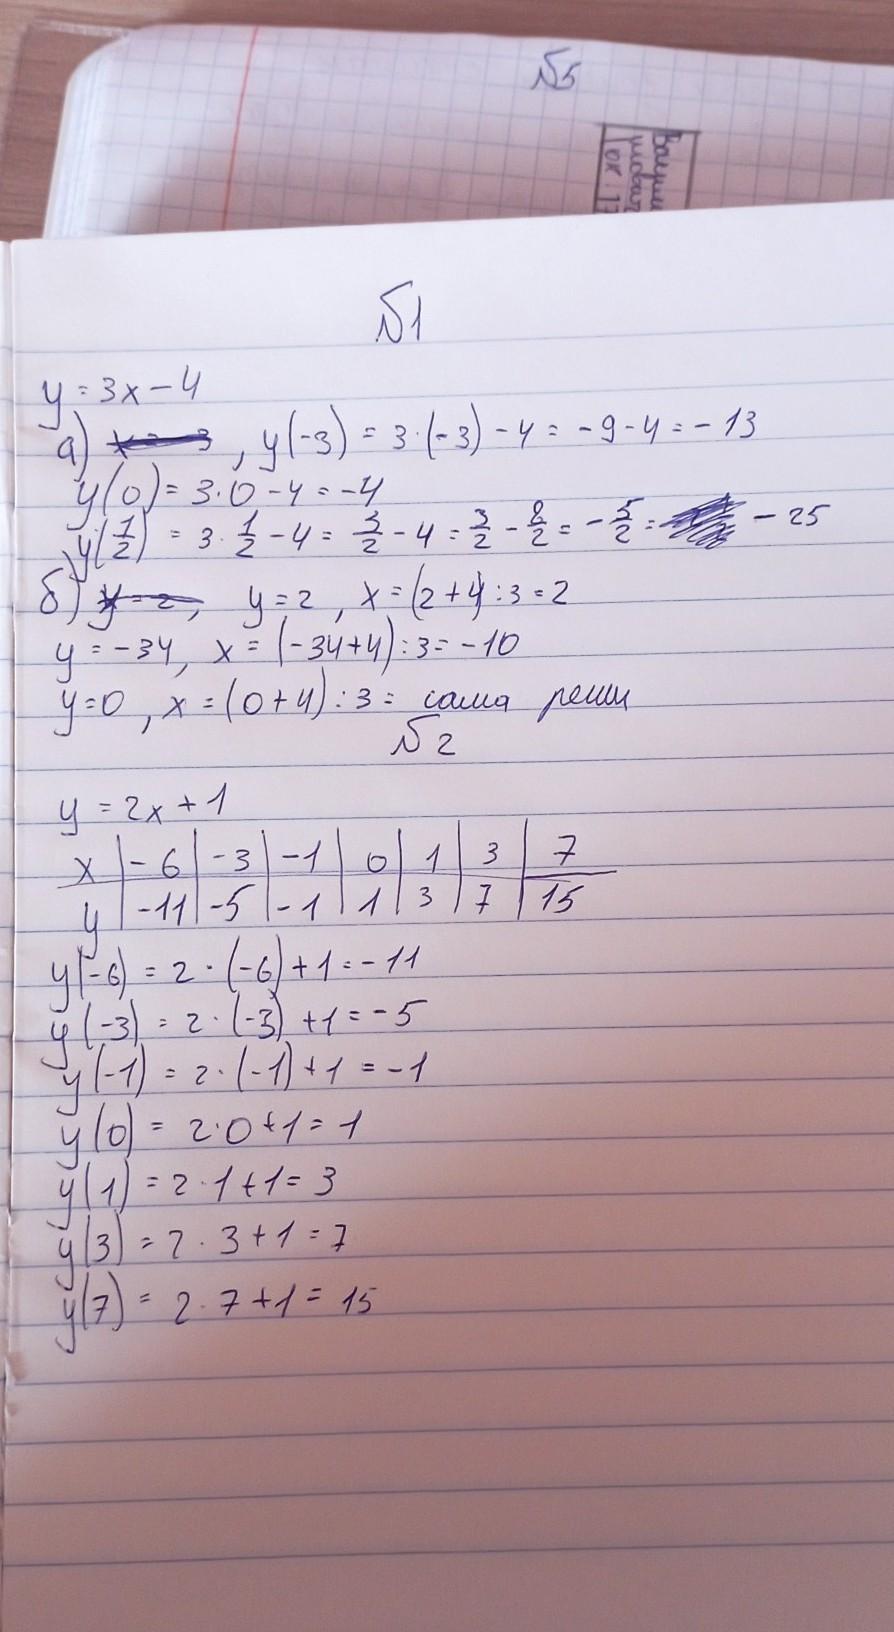 №5
№1
y = 3x - 4
а) x = -3, y(-3) = 3·(-3) - 4 = -9 - 4 = -13
y(0) = 3·0 - 4 = -4
y(1/2) = 3·1/2 - 4 = 3/2 - 4 = 3/2 - 8/2 = -5/2 = -25
б) y = 2, y = 2, x = (2+4):3 = 2
y = -34, x = (-34+4):3 = -10
y = 0, x = (0+4):3 = сама реши
№2
y = 2x + 1
x | -6 | -3 | -1 | 0 | 1 | 3 | 7
y | -11 | -5 | -1 | 1 | 3 | 7 | 15
y(-6) = 2·(-6)+1 = -11
y(-3) = 2·(-3)+1 = -5
y(-1) = 2·(-1)+1 = -1
y(0) = 2·0+1 = 1
y(1) = 2·1+1 = 3
y(3) = 2·3+1 = 7
y(7) = 2·7+1 = 15